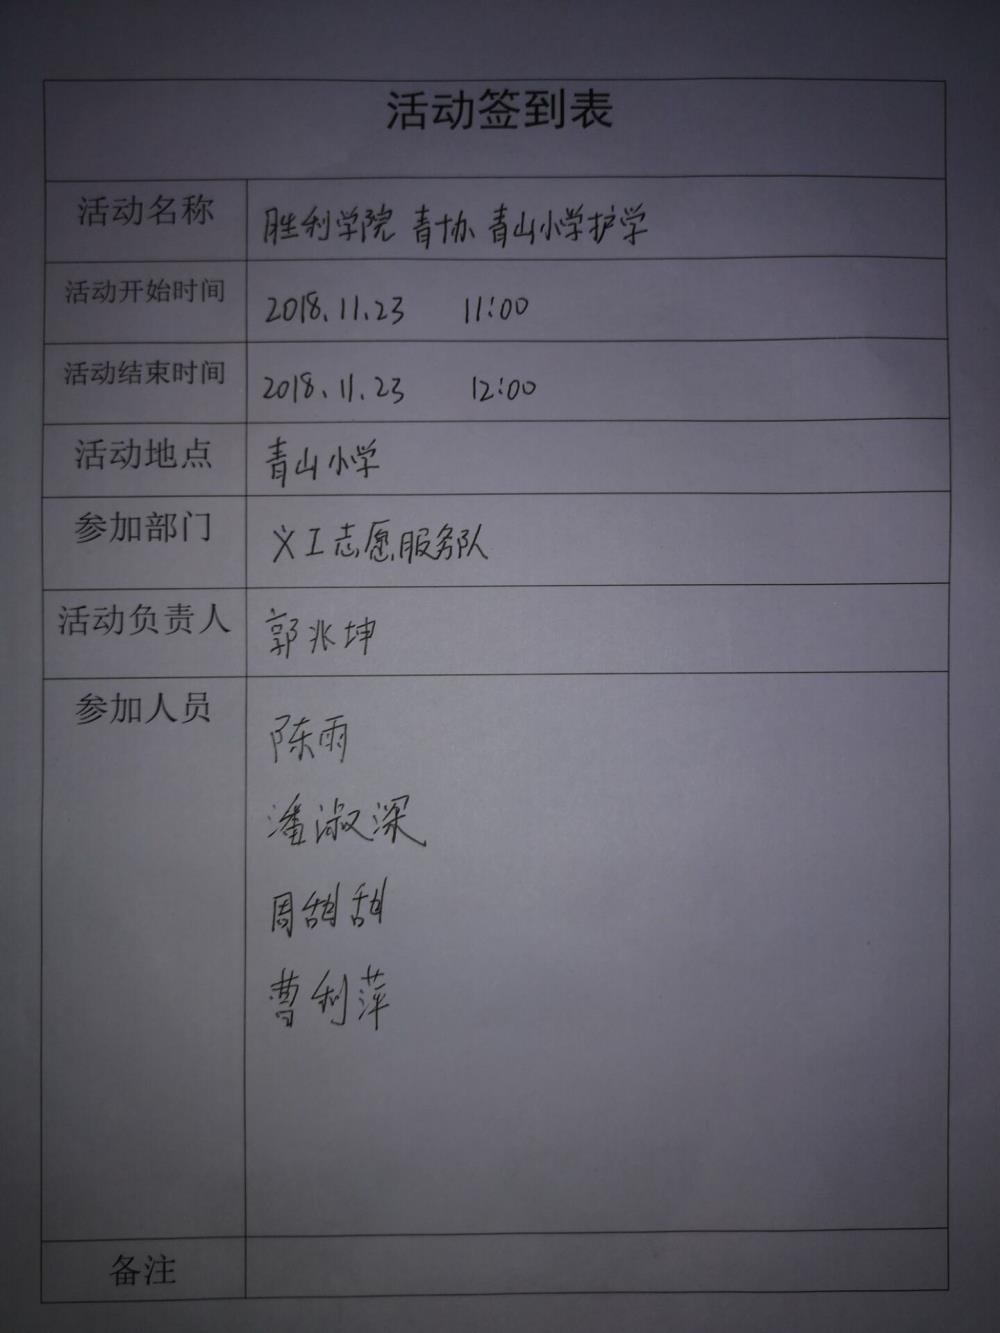 活动签到表
活动名称 胜利学院 青协 青山小学护学
活动开始时间 2018.11.23 11:00
活动结束时间 2018.11.23 12:00
活动地点 青山小学
参加部门 义工志愿服务队
活动负责人 郭兆坤
参加人员 陈雨
潘淑深
周甜甜
曹利萍
备注